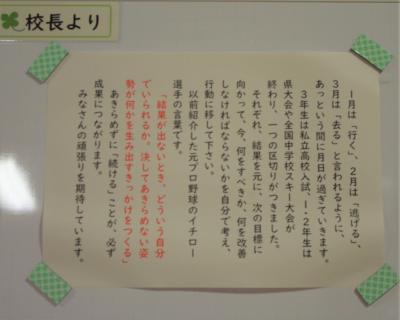 校長より
1月は「行く」、2月は「逃げる」、
3月は「去る」と言われるように、
あっという間に月日が過ぎていきます。
3年生は私立高校入試、1・2年生は
県大会や全国中学校スキー大会が
終わり、一つの区切りがつきました。
それぞれ、結果を元に、次の目標に
向かって、今、何をすべきか、何を改善
しなければならないかを自分で考え、
行動に移して下さい。
以前紹介した元プロ野球のイチロー
選手の言葉です。
「結果が出ないとき、どういう自分
でいられるか。決してあきらめない姿
勢が何かを生み出すきっかけをつくる」
あきらめずに「続ける」ことが、必ず
成果につながります。
みなさんの頑張りを期待しています。